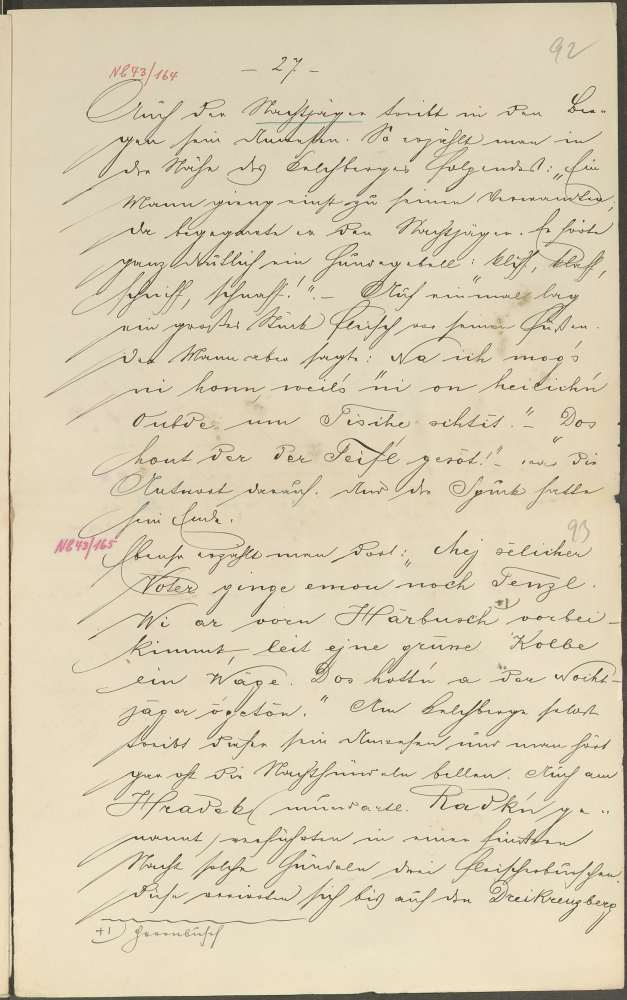 92
NB 43/164
- 27 -
Auch der Nachtjäger treibt in den Ber-
gen sein Unwesen. So erzählt man in
der Nähe des Kelchberges folgendes: "Ein
Mann gieng einst zu seinen Verwandten,
da begegnete er den Nachtjäger. Er hörte
ganz deutlich ein Hundegebell: kliff, klaff,
schniff, schnaff!" - Auf einmal lag
ein großes Stück Fleisch vor seinen Füßen.
Der Mann aber sagte: "Na ich mog's
ni honn weil's ni on heilichn
Oubde um Tische sihtit." - "Dos
hout der der Teifl gesöt!" - war die
Antwort darauf. Und der Spuk hatte
sein Ende.
93
NB 43/165
Ebenso erzählt man dort: "Mej sélicher
Voter genge emou noch Tenzl.
Wi ar vorn Härbusch +) vorbei-
kimmt, leit ejne grüne Kolbe
ein Wäge. Dos hott'n a der Nocht-
jäger ögetôn." Am Kelchberge selbst
treibt dieser sein Unwesen und man hört
gar oft die Nachthündeln bellen. Auch am
Hradek (mundartl. Radk'n ge-
nannt) verführten in einer finstern
Nacht solche Hündeln drei Fleischerburschen.
Diese verirrten sich bis auf den Dreikreuzberg
+) Herrenbusch